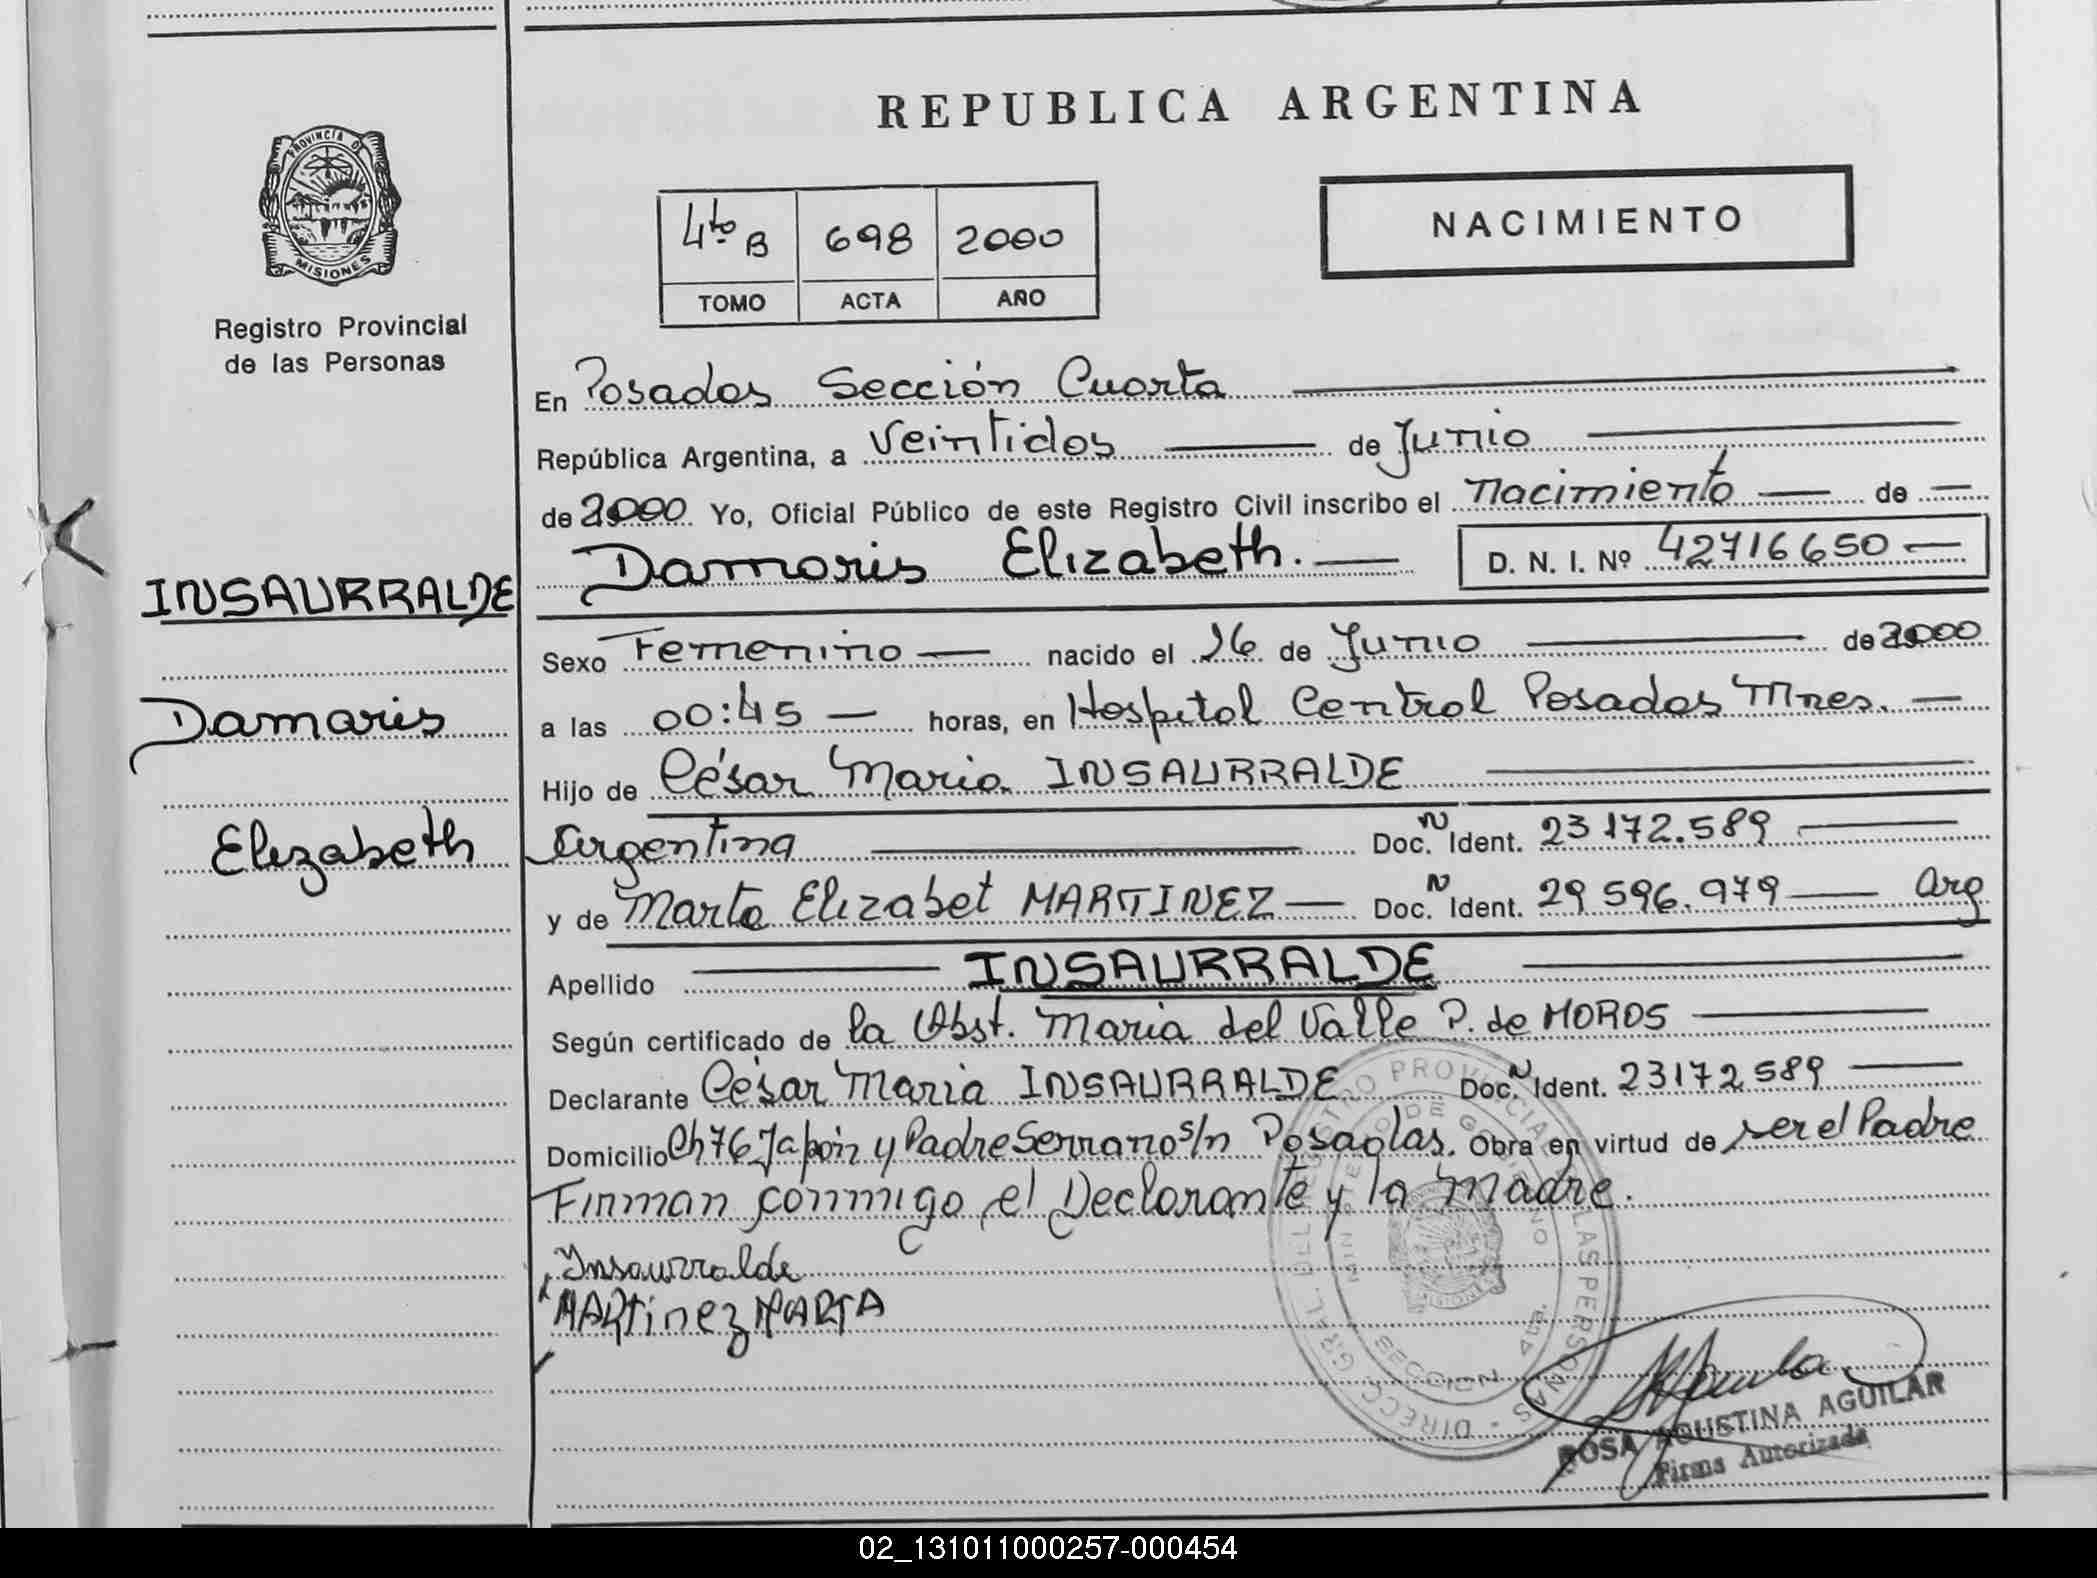 REPUBLICA ARGENTINA
PROVINCIA D
MISIONES
Registro Provincial
de las Personas
4to B 698 2000
TOMO ACTA AÑO
NACIMIENTO
En Posadas Sección Cuarta
República Argentina, a Veintidos de Junio
de 2000 Yo, Oficial Público de este Registro Civil inscribo el Nacimiento de
Damaris Elizabeth. D. N. I. Nº 42716650
INSAURRALDE
Damaris
Elizabeth
Sexo Femenino nacido el 16 de Junio de 2000
a las 00:45 horas, en Hospital Central Posadas Mnes.
Hijo de César Maria INSAURRALDE
Argentina Doc. N Ident. 23172.589
y de Marta Elizabet MARTINEZ Doc. N Ident. 29596.979 Arg
Apellido INSAURRALDE
Según certificado de la Obst. Maria del Valle P. de MOROS
Declarante César Maria INSAURRALDE Doc. N Ident. 23172589
Domicilio Ch 76 Japón y Padre Serrano s/n Posadas. Obra en virtud de ser el Padre
Firman conmigo el Declarante y la Madre.
Insaurralde
MARTinez MARTA
DIRECC. GRAL. DEL REGISTRO PROVINCIAL DE LAS PERSONAS
MINISTERIO DE GOBIERNO
SECCION 4ta.
MISIONES
ROSA AGUSTINA AGUILAR
Firma Autorizada
02_131011000257-000454